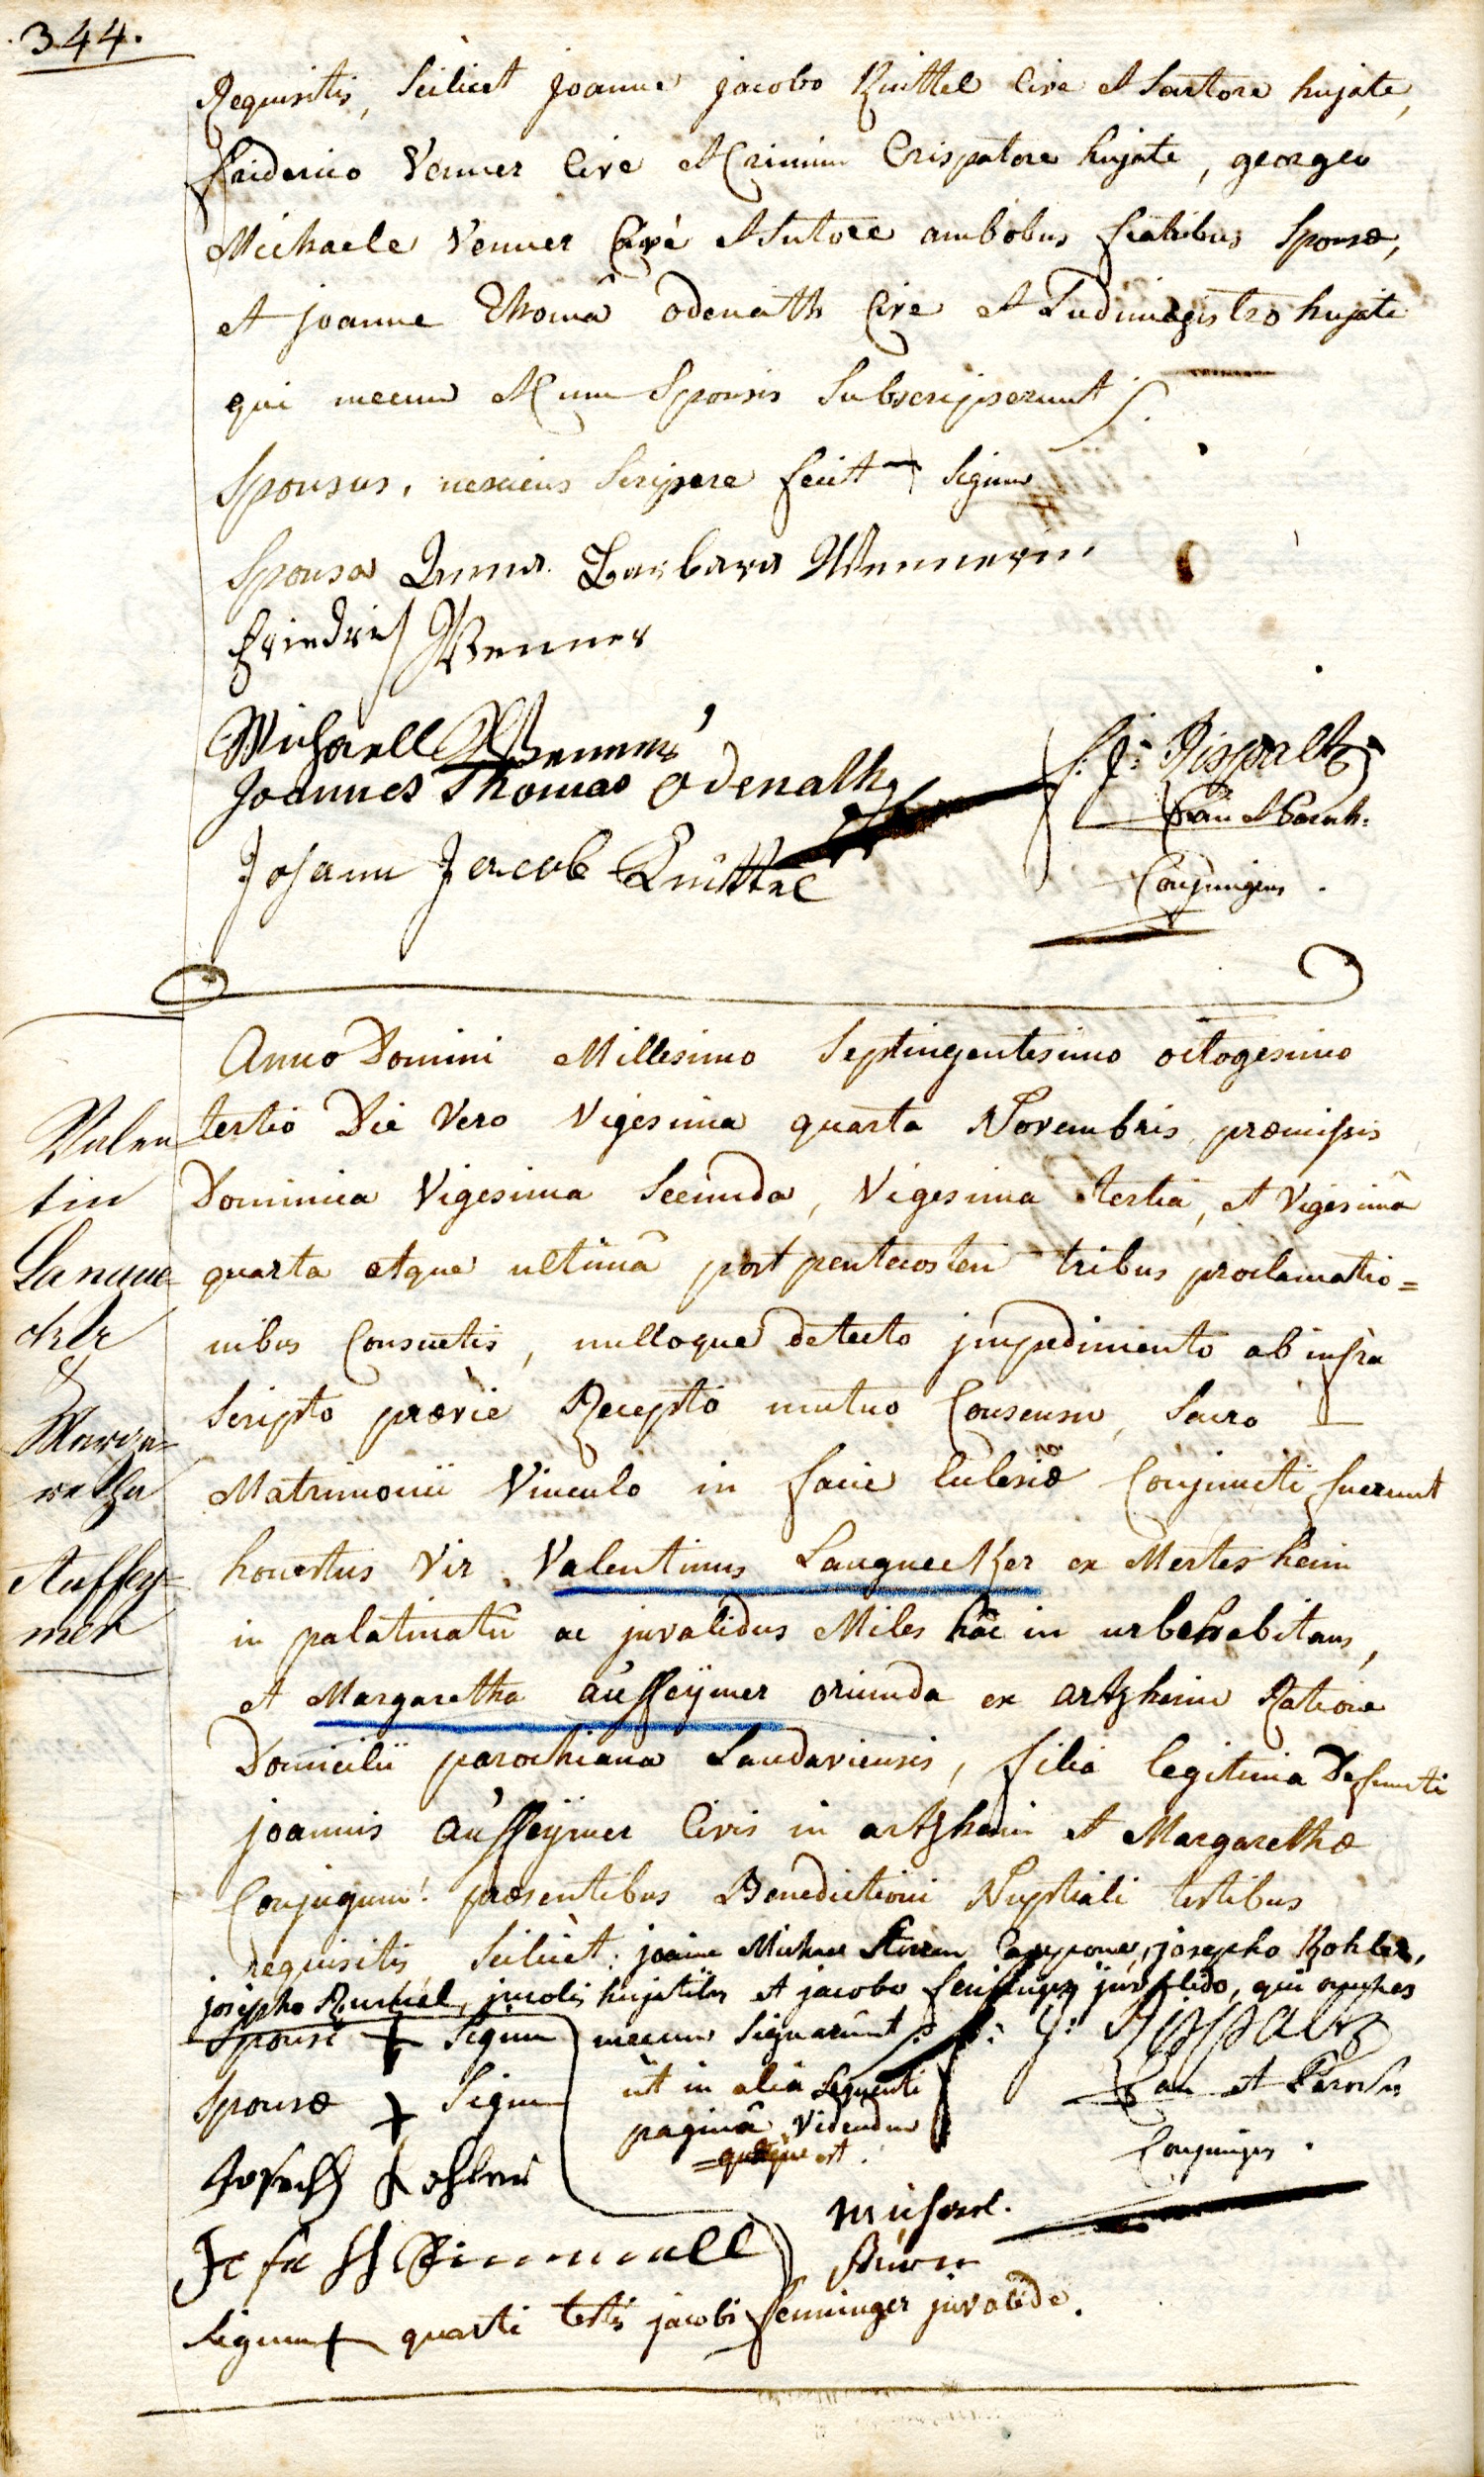 344.
Requisitis, Scilicet joanne jacobo Knittel Cive et Sartore hujate,
friderico Venner Cive et Crinium Crispatore hujate, georgeo
Michaele Venner Cive et Sutore ambobus fratribus Sponsæ,
et joanne Thomâ odenath Cive et Ludimagistro hujate
qui mecum et cum Sponsis Subscripserunt
Sponsus, nesciens Scripere fecit + Signum
Sponsa Anna Barbara Wennerin
friedrich Wenner
Michaell Wenner
Joannes Thomas Odenath
Johann Jacob Knittel
f: J: Rispaltz
Can et Paroch:
Conjungens.
Anno Domini Millesimo Septingentesimo octogesimo
tertio Die Vero Vigesima quarta Novembris præmissis
Dominica Vigesima Secunda, Vigesima tertia, et Vigesimâ
quarta atque ultimâ post pentecosten tribus proclamatio=
nibus Consuetis, nulloque detecto jmpedimento ab infra
Scripto prævie Recepto mutuo Consensu, Sacro
Matrimonii Vinculo in facie Ecclesiæ Conjuncti fuerunt
honestus Vir Valentinus Langnecker ex Mertesheim
in palatinatu ac jnvalidus Miles hâc in urbe habitans,
et Margaretha aùffeÿmer oriunda ex artzheim Ratione
Domicilii parochiana Landaviensis, filia legitima Defuncti
joannis aùffeÿmer Civis in artzheim et Margarethæ
Conjugum: præsentibus Benedictioni Nuptiali testibus
requisitis Scilicet: joanne Michaele, josepho Kohler,
josepho, jncolis hujatibus et jacobo fenninger jnvalido, qui omnes
mecum Signarunt
ut in alia Sequenti
paginâ Videndum
est.
Valen
tin
Langne
cker
&
Marga=
retha
Auffey=
mer
Sponsi + Signum
Sponsæ + Signum
Joseph Kohler
f: J: Rispaltz
Can et Paroch
Conjungens.
Michael
Signum + quarti testis jacobi fenninger jnvalide.